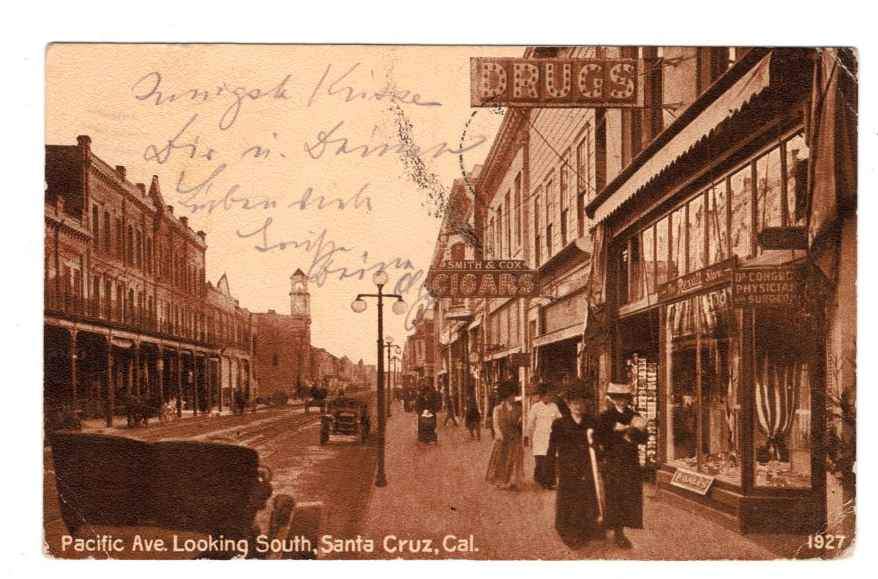 Innigste Küsse
Dir u. Deinen
Lieben
DRUGS
SMITH & COX
CIGARS
The Rexall Store
DR CONGDON
PHYSICIAN
AND SURGEON
Pacific Ave. Looking South, Santa Cruz, Cal.
1927